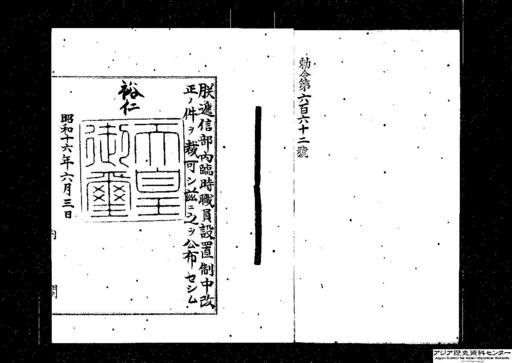 勅令第六百六十二號
朕遞信部內臨時職員設置制中改
正ノ件ヲ裁可シ茲ニ之ヲ公布セシム
裕仁
天皇
御璽
昭和十六年六月三日
內
閣
アジア歴史資料センター
Japan Center for Asian Historical Records